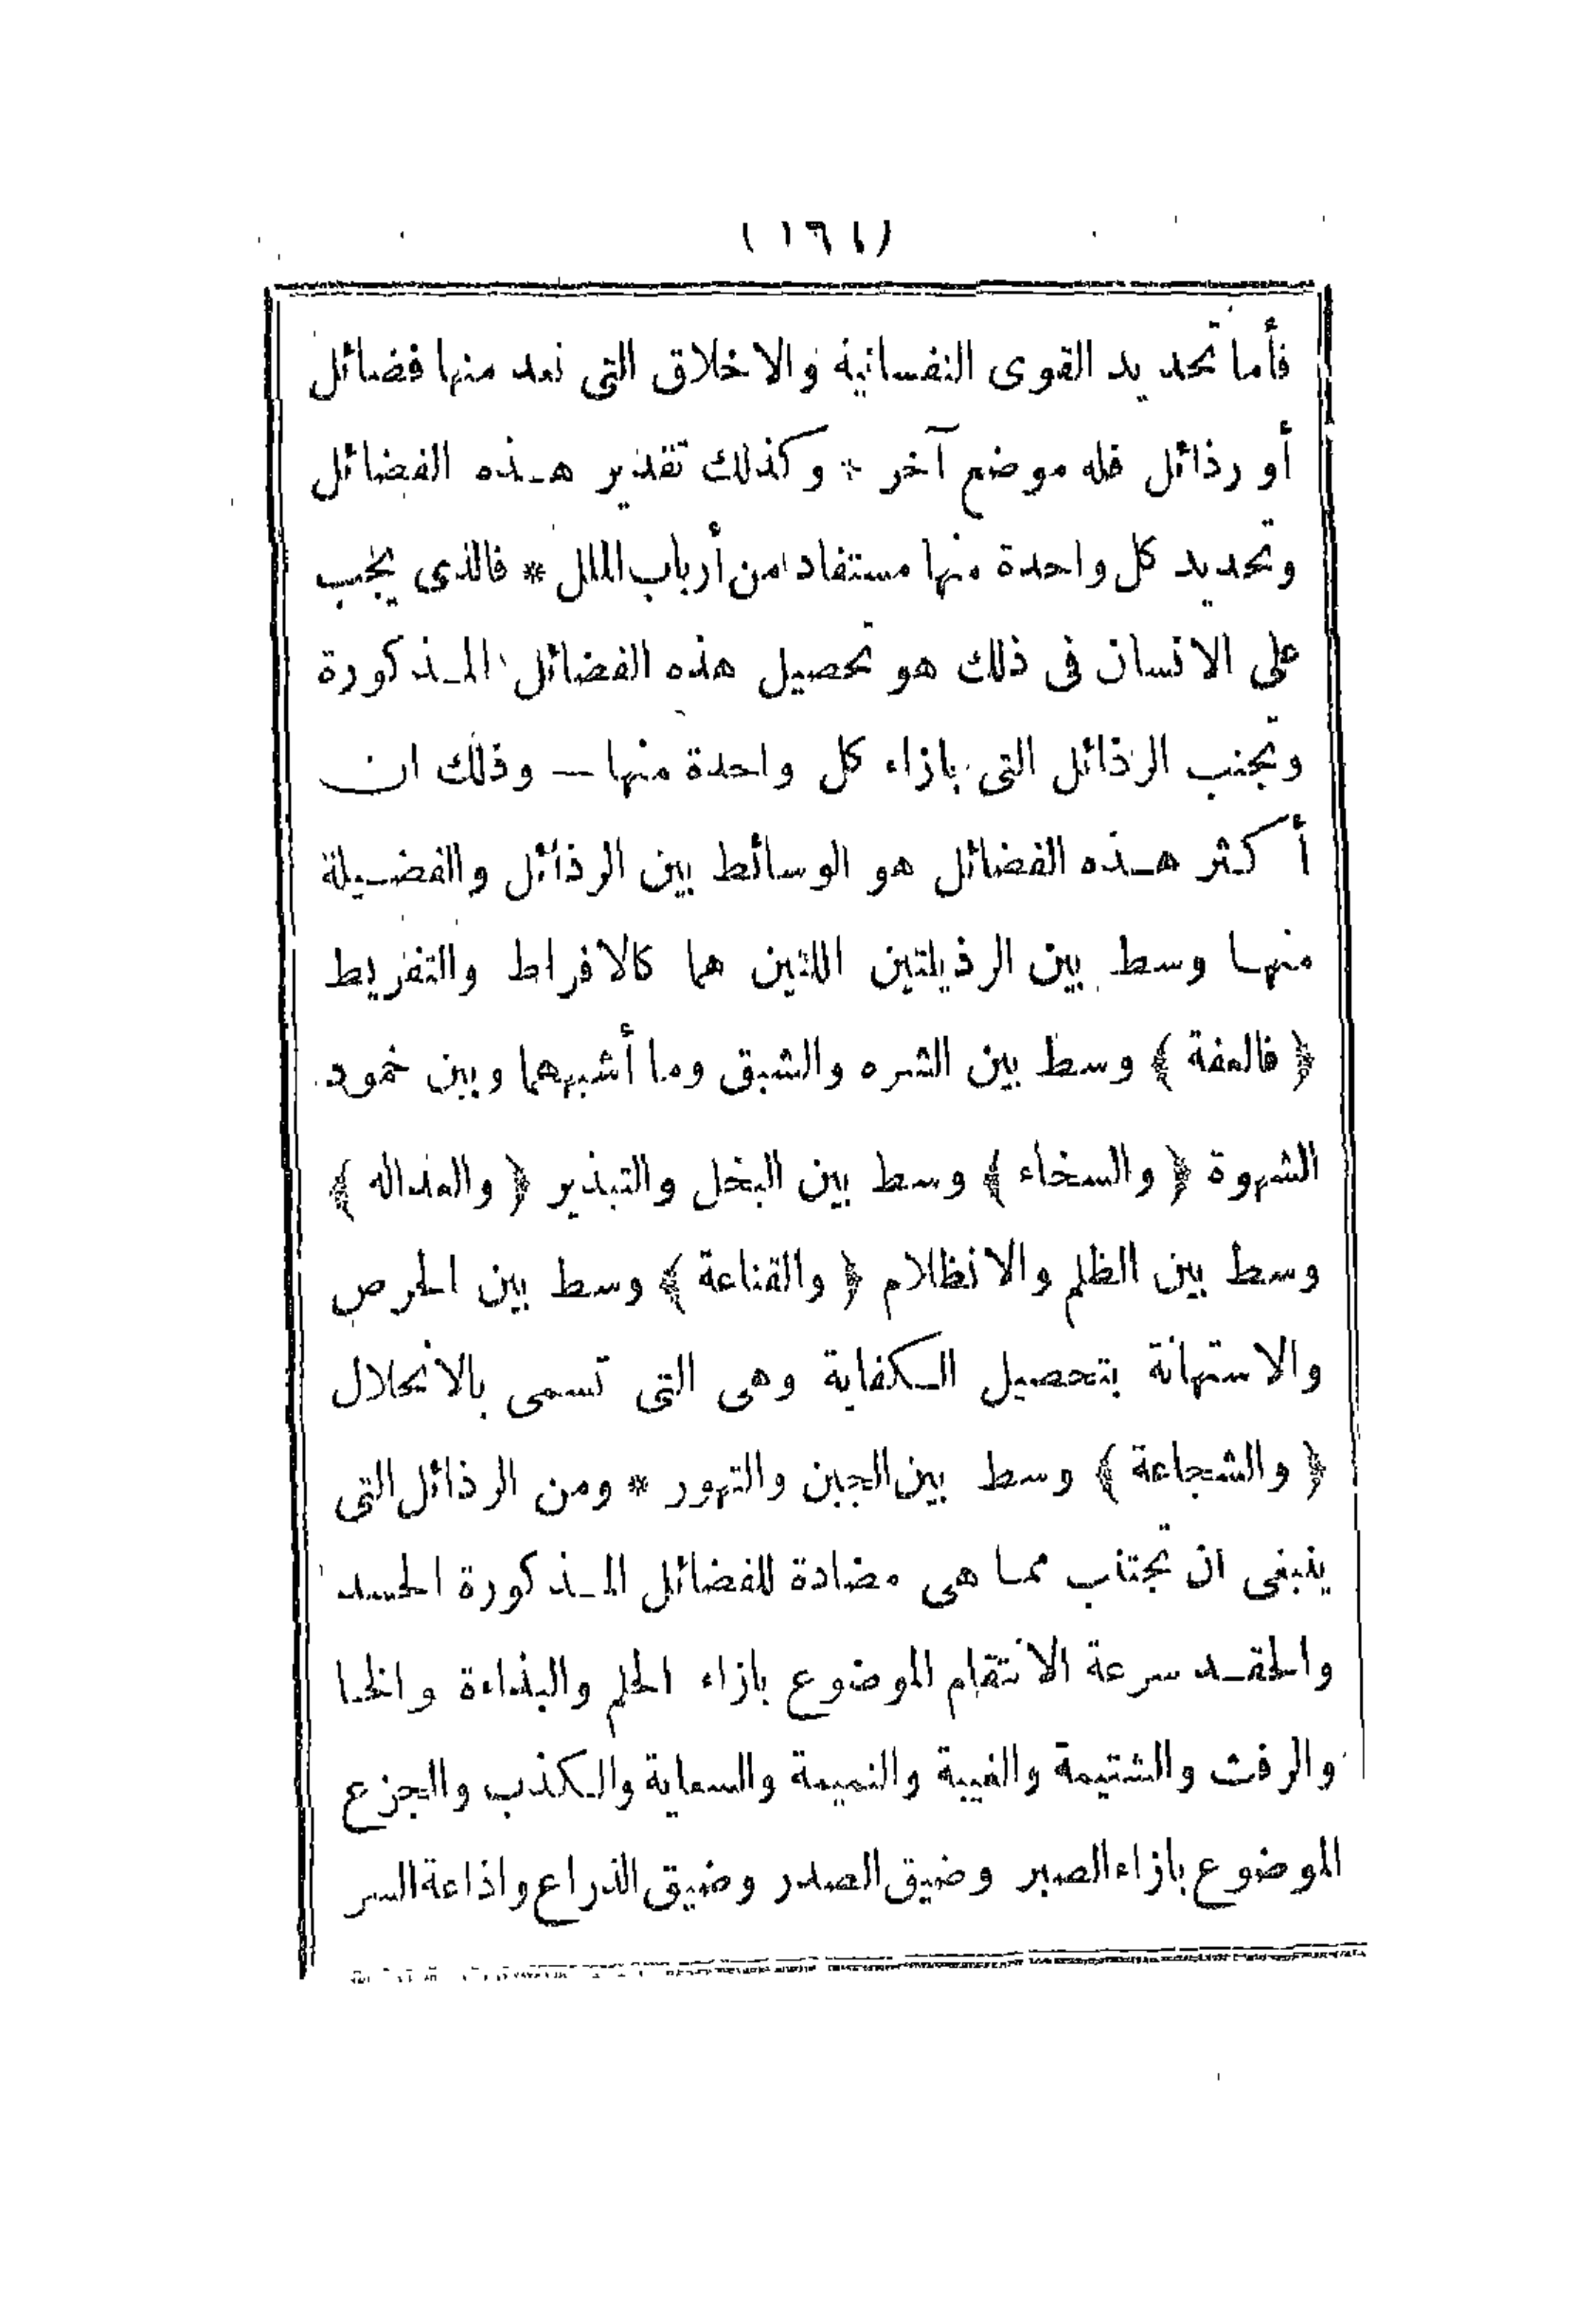 (١٦١)
فأما تحديد القوى النفسانية والاخلاق التى نعد منها فضائل
أو رذائل فله موضع آخر * وكذلك تقدير هذه الفضائل
وتحديد كل واحدة منها مستفاد من أرباب الملل * فالذى يجب
على الانسان فى ذلك هو تحصيل هذه الفضائل المذكورة
وتجنب الرذائل التى بازاء كل واحدة منها — وذلك ان
أكثر هذه الفضائل هو الوسائط بين الرذائل والفضيلة
منها وسط بين الرذيلتين اللتين هما كالافراط والتفريط
﴿ فالعفة ﴾ وسط بين الشره والشبق وما أشبههما وبين خمود
الشهوة ﴿ والسخاء ﴾ وسط بين البخل والتبذير ﴿ والعداله ﴾
وسط بين الظلم والانظلام ﴿ والقناعة ﴾ وسط بين الحرص
والاستهانة بتحصيل الكفاية وهى التى تسمى بالانحلال
﴿ والشجاعة ﴾ وسط بين الجبن والتهور * ومن الرذائل التى
ينبغى ان تجتنب مما هى مضادة للفضائل المذكورة الحسد
والحقد سرعة الانتقام الموضوع بازاء الحلم والبذاءة والخنا
والرفث والشتيمة والغيبة والنميمة والسعاية والكذب والجزع
الموضوع بازاء الصبر وضيق الصدر وضيق الذراع واذاعة السر